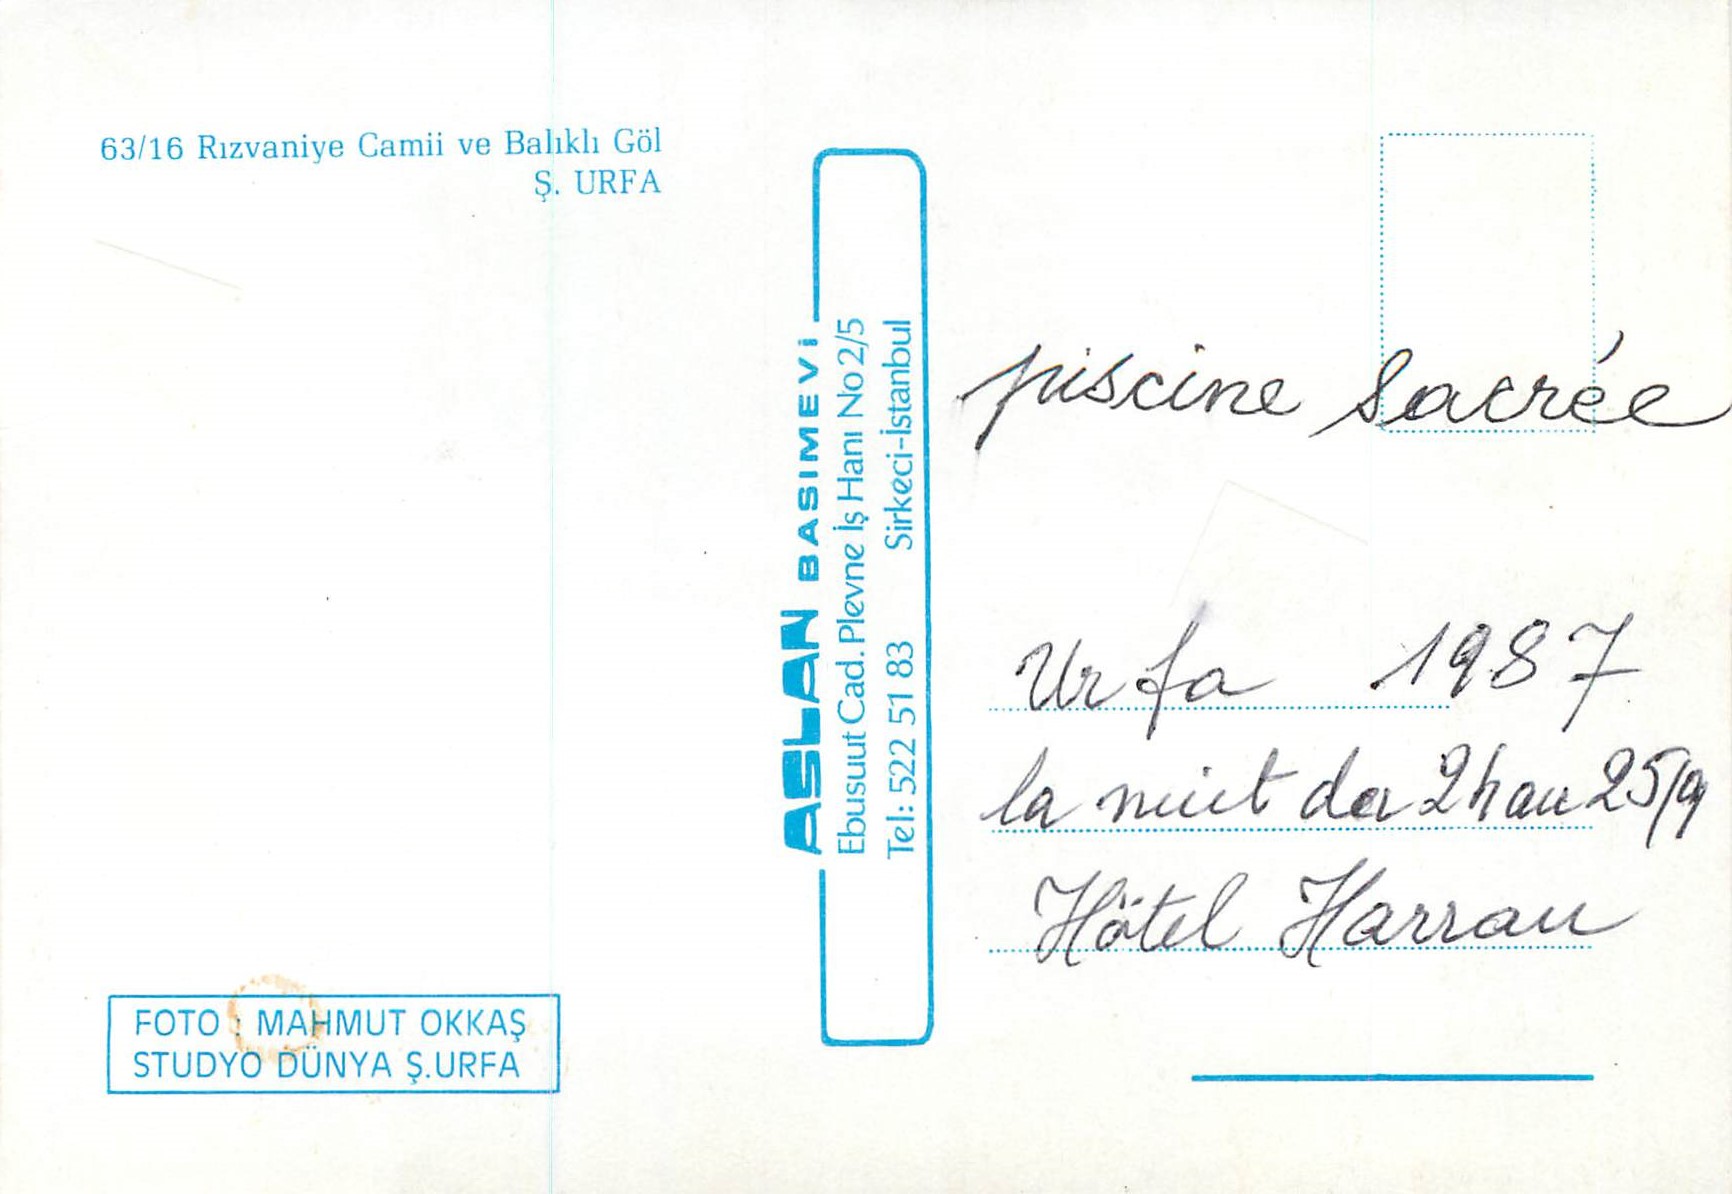 63/16 Rızvaniye Camii ve Balıklı Göl
Ş. URFA
ASLAN BASIMEVİ
Ebusuut Cad. Plevne İş Hanı No 2/5
Tel: 522 51 83 Sirkeci-İstanbul
piscine sacrée
Urfa 1987
la nuit du 24 au 25/9
Hôtel Harran
FOTO : MAHMUT OKKAŞ
STUDYO DÜNYA Ş.URFA